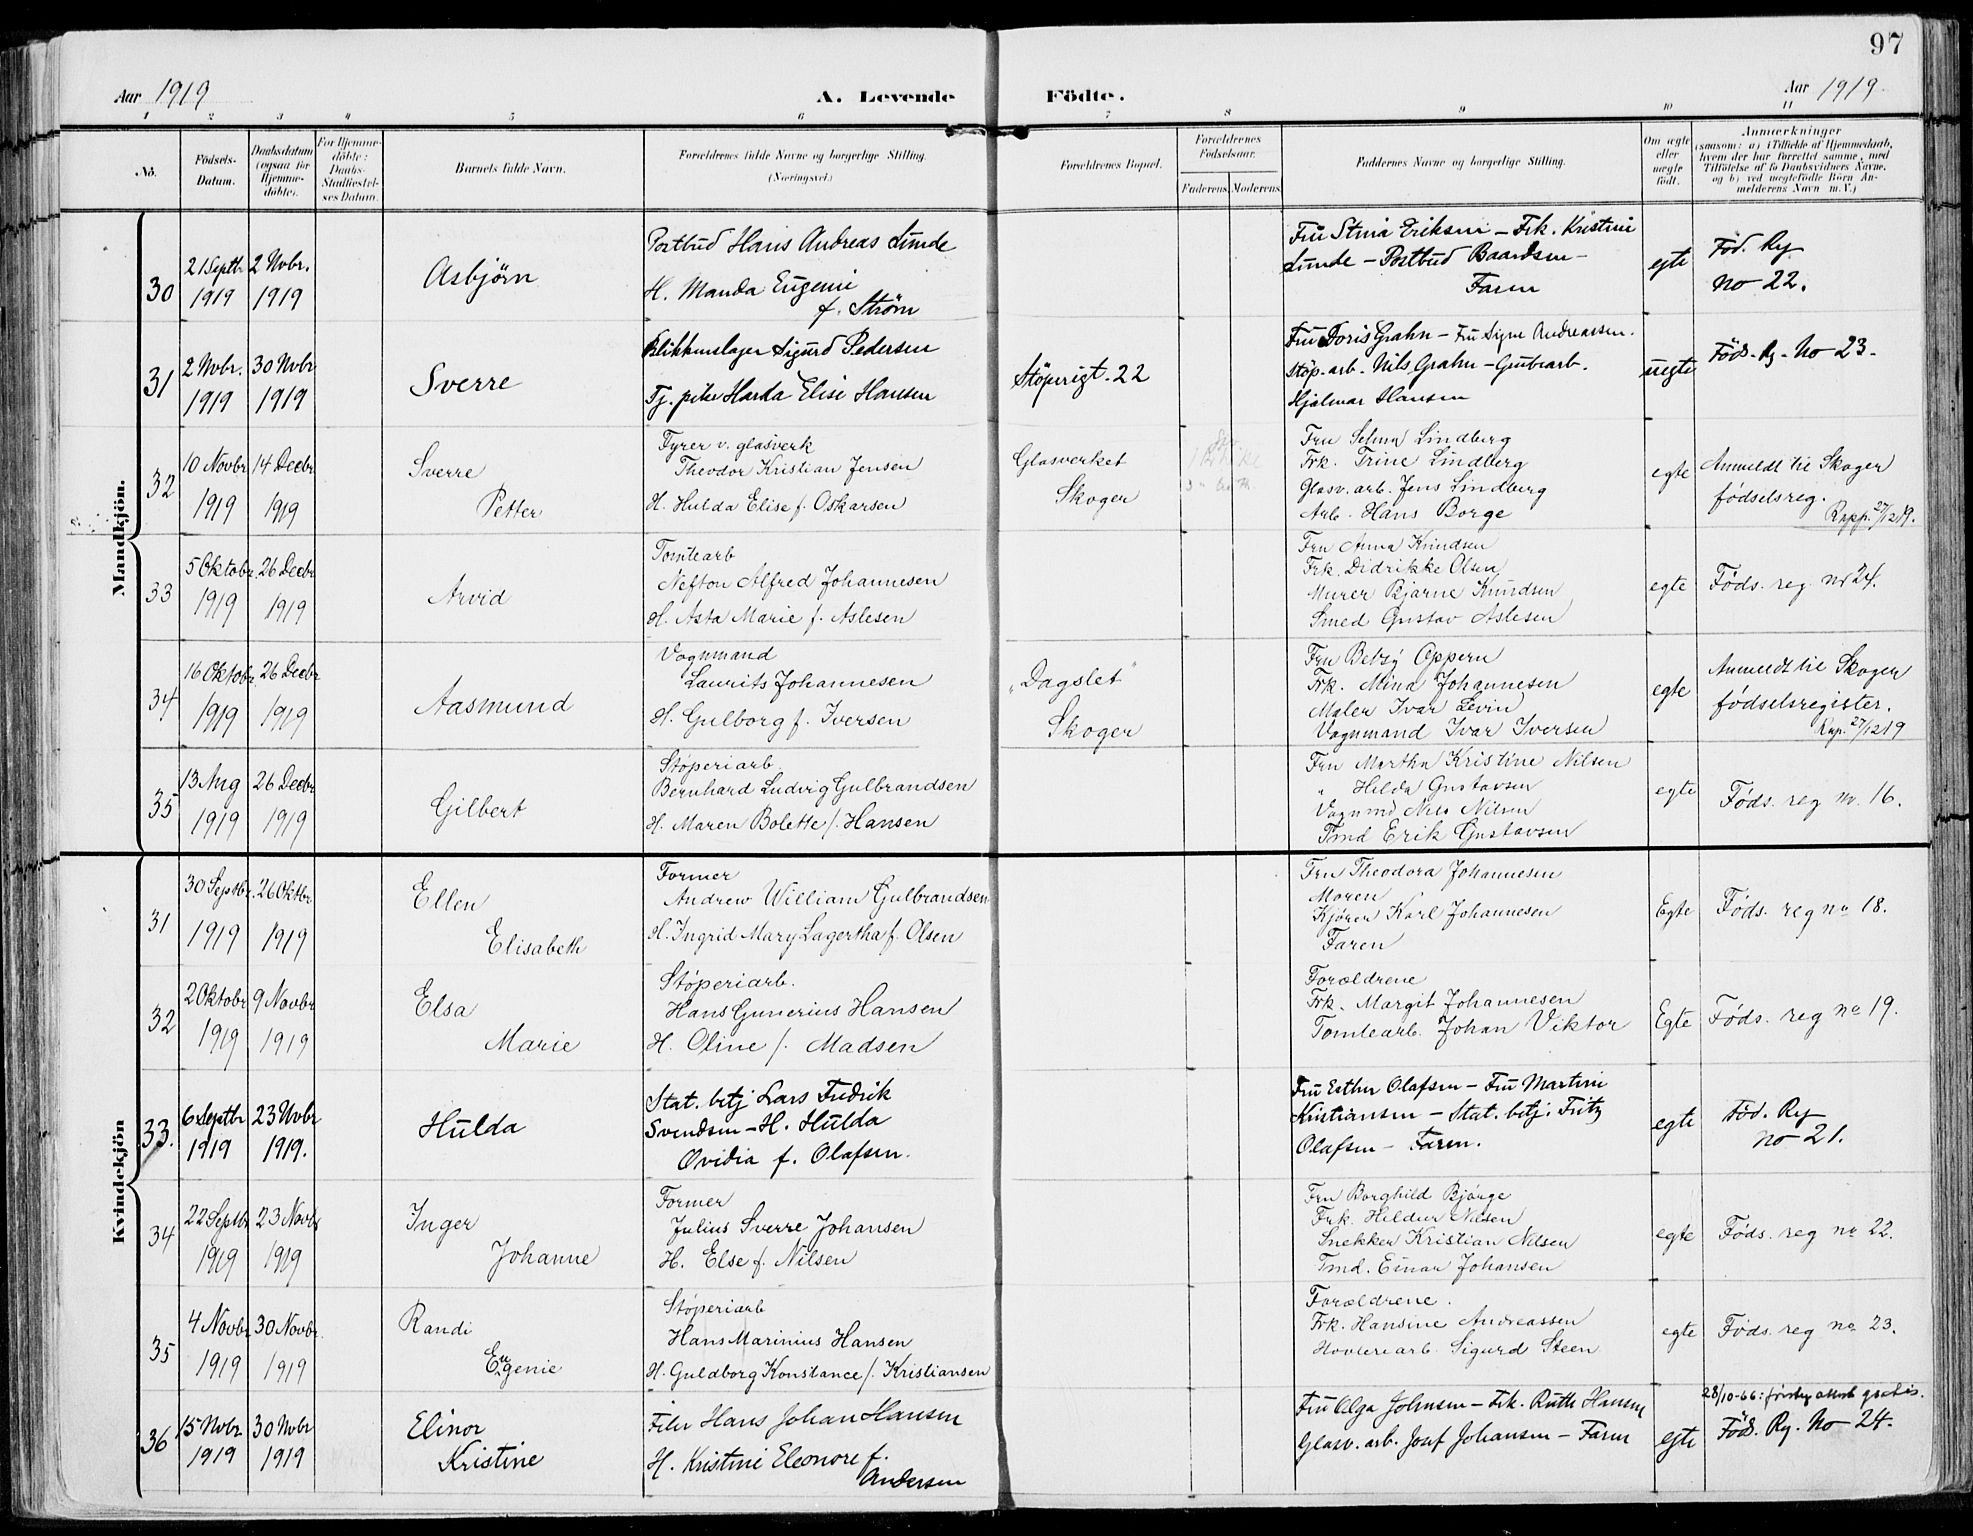 97
Aar 1919
A. Levende Födte.
Aar 1919
1 2 3 4 5 6 7 8 9 10 11
No.
Födsels-Datum.
Daabsdatum (ogsaa for Hjemme-döbte).
For Hjemme-döbte: Daabs-Stadfæstel-ses Datum.
Barnets fulde Navn.
Forældrenes fulde Navne og borgerlige Stilling.
(Næringsvei.)
Forældrenes Bopæl.
Forældrenes Födselsaar.
Faderens. Moderens.
Faddernes Navne og borgerlige Stilling.
Om ægte eller uægte födt.
Anmærkninger
(saasom: a) i Tilfælde af Hjemmedaab,
hvem der har forrettet samme, med
Tilföielse af to Daabsvidners Navne,
og b) ved uægtefödte Börn An-
melderens Navn m. V.)
Mandkjön.
30
21 Septbr 1919
2 Nvbr. 1919
Asbjörn
Postbud Hans Andreas Lunde
H. Manda Eugenie
f. Ström
Fru Stina Eriksen – Frk. Kristine
Lunde – Postbud Baardsen –
Faren
egte
Fød. Rg.
No 22.
31
2 Nvbr. 1919
30 Nvbr 1919
Sverre
Blikkenslager Sigurd Pedersen
Tj. pike Harda Elise Hansen
Støperigt. 22
Fru Doris Grahn – Fru Signe Andreassen.
Støp. arb. Nils Grahn – Grubearb.
Hjalmar Hansen
uegte
Föds. Rg. No 23.
32
10 Novbr 1919
14 Decbr 1919
Sverre
Petter
Fyrer v. glasverk
Theodor Kristian Jensen
H. Hulda Elise f. Oskarsen
Glasverket
Skoger
Fru Selma Lindberg
Frk. Trine Lindberg
Glasv. arb. Jens Lindberg
Arb. Hans Borge
egte
Anmeldt til Skoger
fødselsreg.
Rapp. 27/12 19.
33
5 Oktobr 1919
26 Decbr 1919
Arvid
Tomtearb
Nefton Alfred Johannesen
H. Asta Marie f. Aslesen
Fru Anna Knudsen
Frk. Didrikke Olsen
Murer Bjarne Knudsen
Smed Gustav Aslesen
egte
Føds. reg. nr 24.
34
16 Oktobr 1919
26 Decbr 1919
Aasmund
Vognmand
Laurits Johannesen
H. Gulborg f. Iversen
„Dagslet"
Skoger
Fru Betzy Oppern
Frk. Mina Johannesen
Maler Ivar Levin
Vognmand Ivar Iversen
egte
Anmeldt til Skoger
fødselsregister.
Rap. 27/12 19
35
13 Aug 1919
26 Decbr 1919
Gilbert
Støperiarb.
Bernhard Ludvig Gulbrandsen
H. Maren Bolette f. Hansen
Fru Martha Kristine Nilsen
„ Hilda Gustavsen
Vognmd Nils Nilsen
Tmd Erik Gustavsen
egte
Føds. reg nr. 16.
Kvindekjön
31
30 Septbr. 1919
26 Oktbr. 1919
Ellen
Elisabeth
Former
Andrew William Gulbrandsen
H. Ingrid Mary Lagertha f. Olsen
Fru Theodora Johannesen
Moren
Kjører Karl Johannesen
Faren
Egte
Føds. reg no 18.
32
2 Oktobr 1919
9 Novbr 1919
Elsa
Marie
Støperiarb.
Hans Gunerius Hansen
H. Oline f. Madsen
Forældrene
Frk. Margit Johannesen
Tomtearb. Johan Viktor
Egte
Føds. reg no 19.
33.
6 Septbr 1919
23 Nvbr 1919.
Hulda
Stat. betj Lars Fredrik
Svendsen – H. Hulda
Ovidia f. Olafsen.
Fru Esther Olafsen – Fru Martine
Kristiansen – Stat. betj. Fritz
Olafsen – Faren.
egte
Fød. Rg
No 21.
34
22 Septbr 1919
23 Novbr 1919
Inger
Johanne
Former
Julius Sverre Johansen
H. Else f. Nilsen
Fru Borghild Bjørge
Frk. Hildur Nilsen
Snekker Kristian Nilsen
Tmd. Einar Johansen
egte
Føds. reg no 22.
35
4 Novbr 1919
30 Novbr. 1919
Randi
Eugenie
Støperiarb
Hans Marinius Hansen
H. Guldborg Konstance f. Kristiansen
Forældrene.
Frk. Hansine Andreassen
Høvleriarb. Sigurd Steen
egte
Føds. reg no 23.
36
15 Nvbr 1919
30 Nvbr 1919
Elinor
Kristine
Filer Hans Johan Hansen
H. Kristine Eleonore f.
Andersen
Fru Olga Johnsen – Frk. Ruth Hansen
Glasv. arb. Josef Johansen – Faren
egte
28/10-66: attest gratis.
Föds. Rg. No 24.